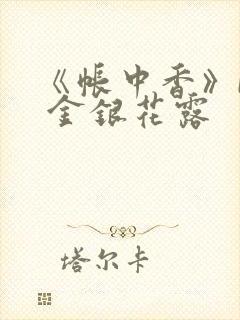 《帐中香》
金银花露
塔尔卡